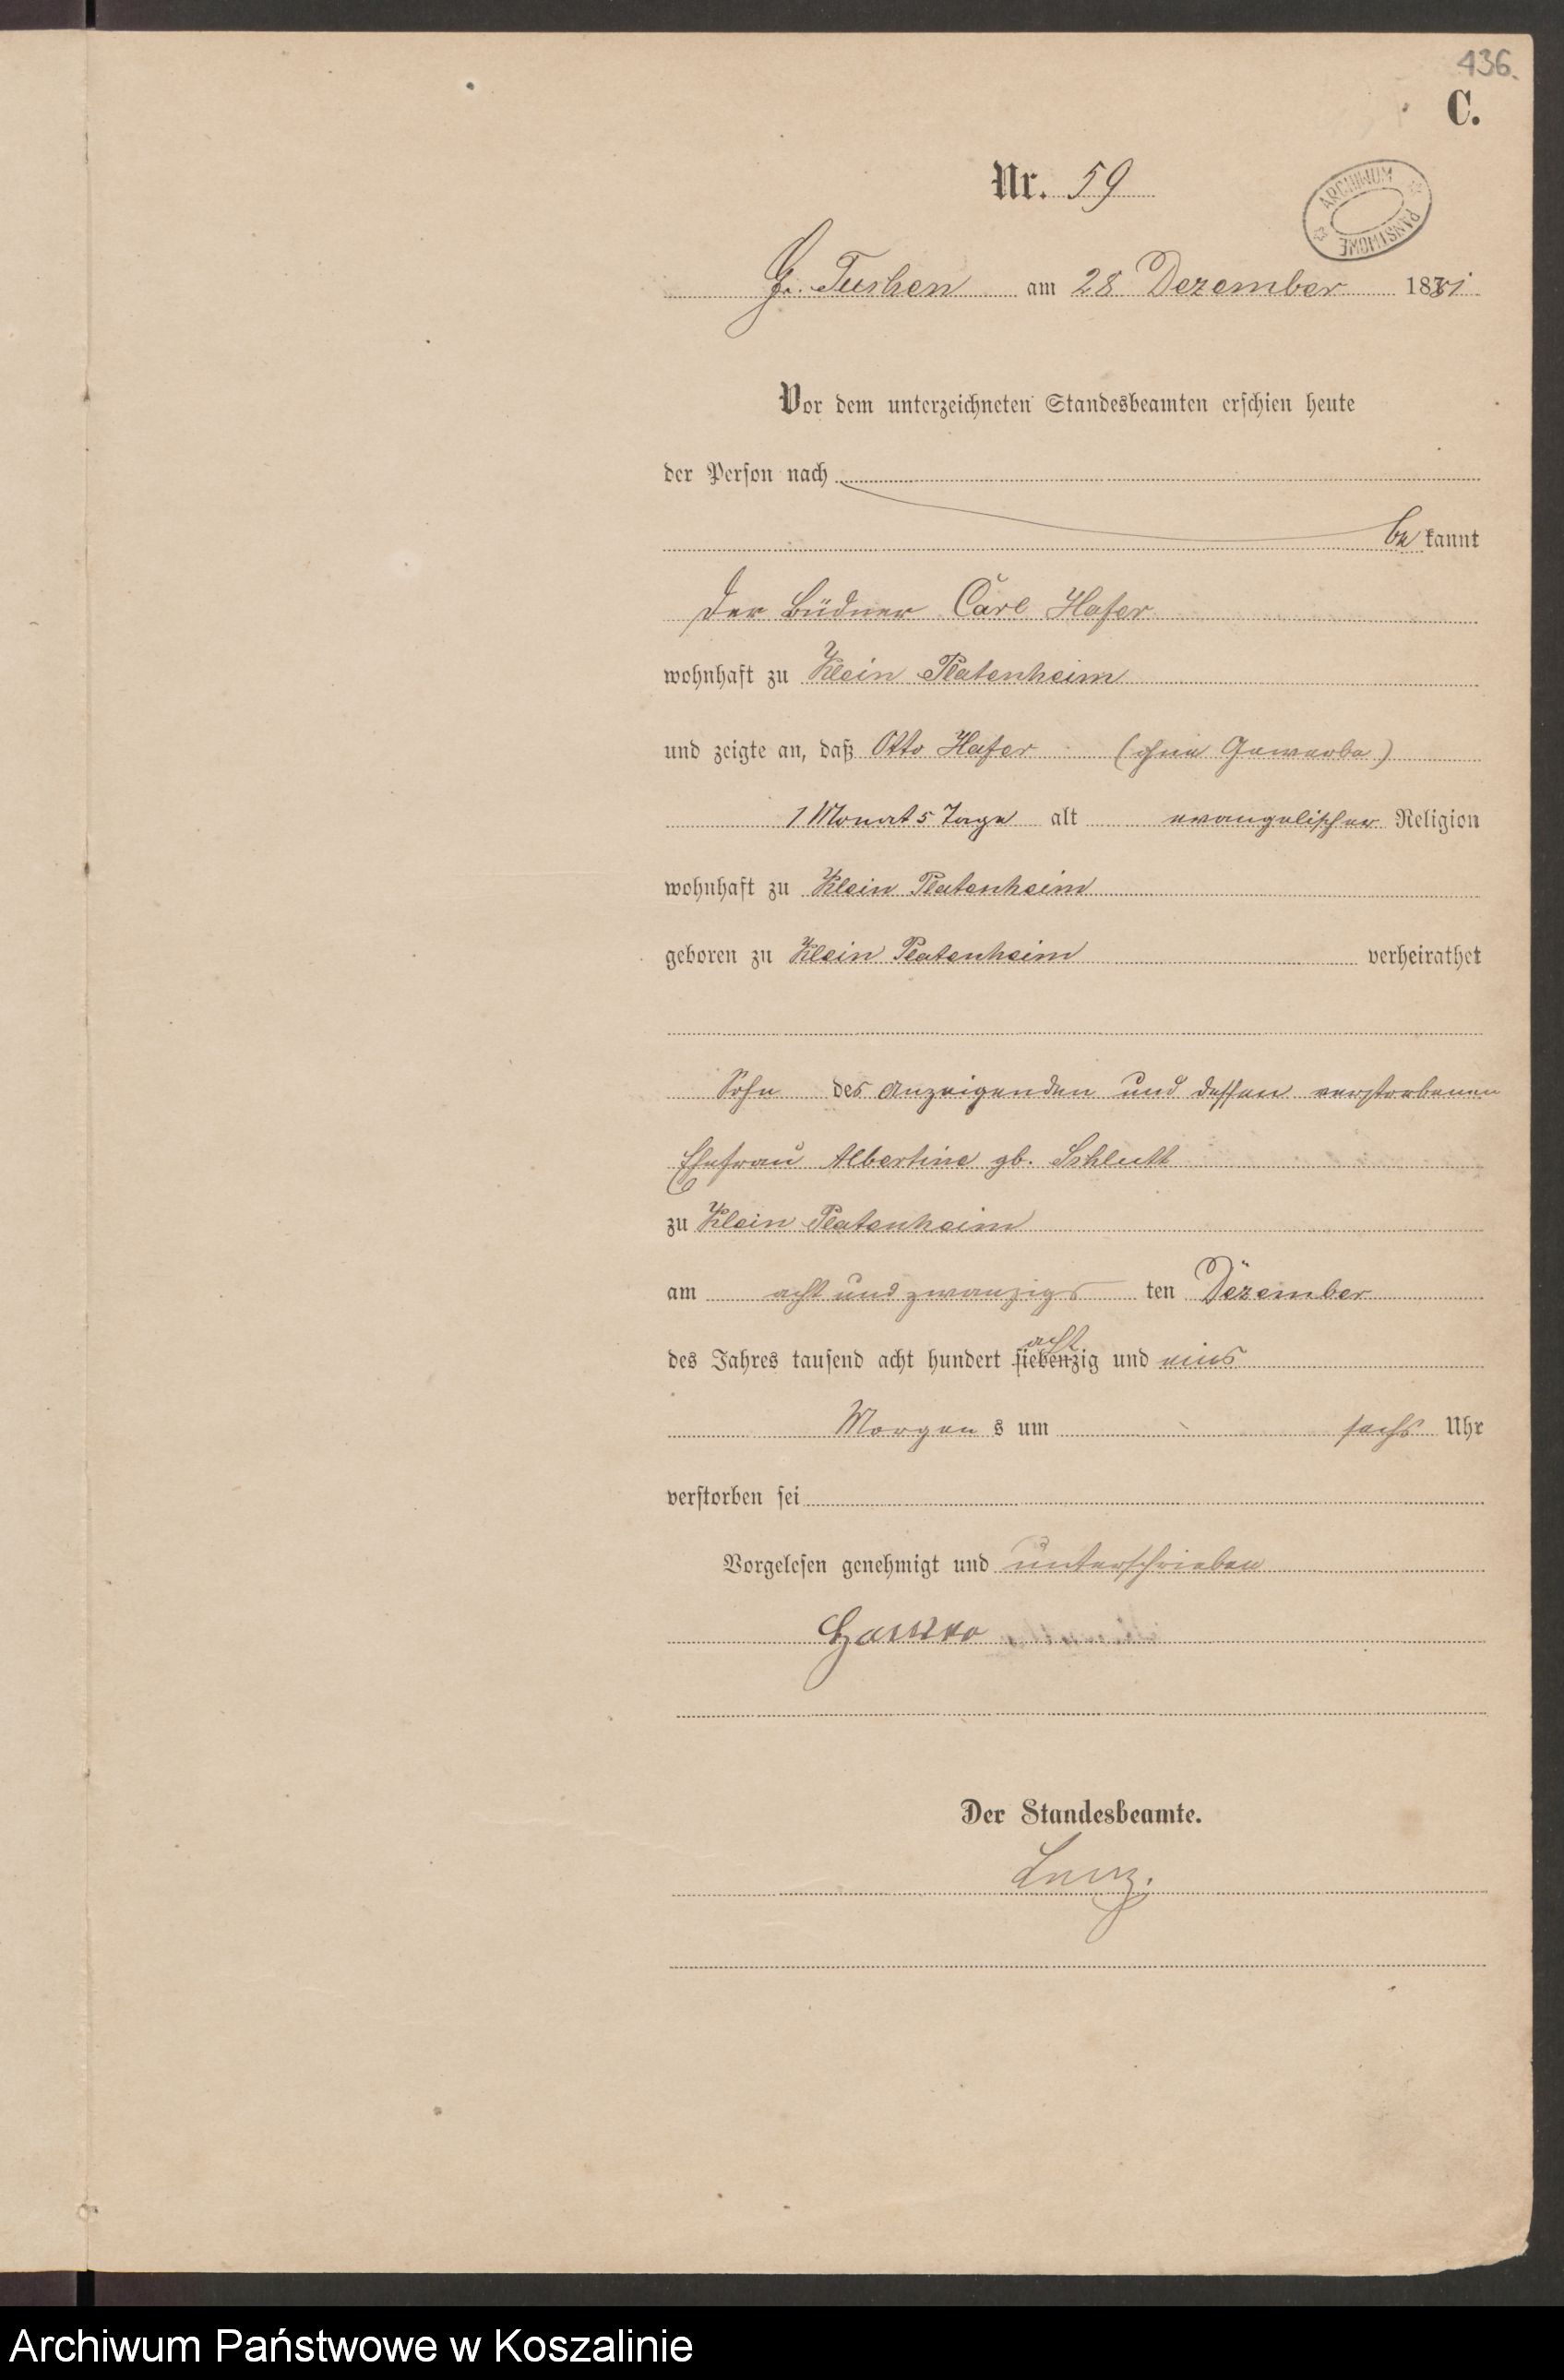 436.
C.
Nr. 59
ARCHIWUM PAŃSTWOWE
Gr. Tuchen am 28 Dezember 1881
Vor dem unterzeichneten Standesbeamten erschien heute
der Person nach
be kannt
der Büdner Carl Hafer
wohnhaft zu Klein Platenheim
und zeigte an, daß Otto Hafer (ohne Gewerbe)
1 Monat 5 Tage alt evangelischer Religion
wohnhaft zu Klein Platenheim
geboren zu Klein Platenheim verheirathet
Sohn des Anzeigenden und dessen verstorbenen
Ehefrau Albertine gb. Schlutt
zu Klein Platenheim
am acht und zwanzigs ten Dezember
des Jahres tausend acht hundert siebenzig und eins
acht
Morgen s um sechs Uhr
verstorben sei
Vorgelesen genehmigt und unterschrieben
Der Standesbeamte.
Archiwum Państwowe w Koszalinie